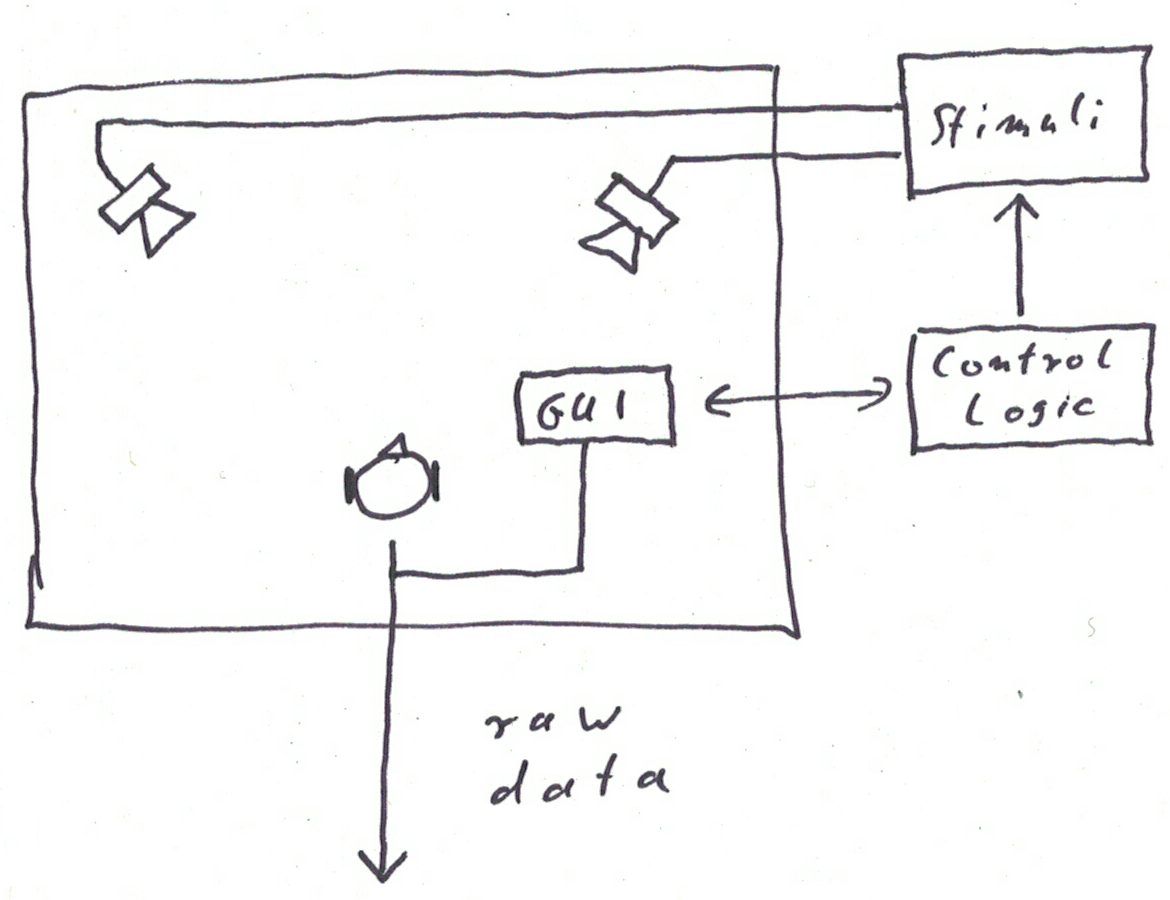 Stimuli
Control
Logic
GUI
raw
data